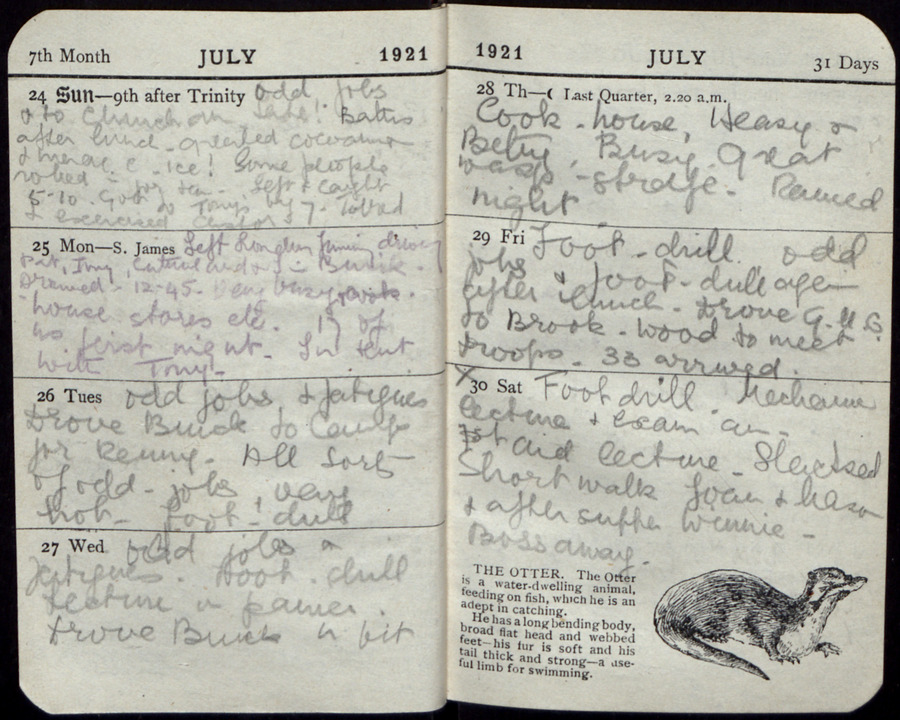 7th Month JULY 1921
24 Sun—9th after Trinity odd jobs
& to Church am late! Baths
after lunch - created cocoanut
& ice! Some people
for tea - Left & caught
5-10. Got to Tony's by 7. Tubbed
& exercised
25 Mon—S. James Left Junior driving
Pat, Tony, in Buick.
Arrived - 12-45. Very busy
house stores etc. 17 of
us first night. In tent
with Tony.
26 Tues odd jobs & fatigues
Drove Buick to
for Kenny. All sorts
of odd - jobs, very
hot - foot - drill
27 Wed odd jobs &
fatigues. Foot - drill
Lecture
Drove Buick a bit
1921 JULY 31 Days
28 Th—☾ Last Quarter, 2.20 a.m.
Cook - house, Heasy &
Betty. Busy. Great
wasp - strafe. Rained
night
29 Fri Foot - drill. odd
jobs & foot - drill again
after lunch. Drove G.M.C.
to Brook - wood to meet
troops - 33 arrived.
X
30 Sat Foot drill. Mechanism
lecture & exam am -
1st aid lecture - Slacked
Short walk Joan &
& after supper Winnie -
Boss away.
THE OTTER. The Otter
is a water-dwelling animal,
feeding on fish, which he is an
adept in catching.
He has a long bending body,
broad flat head and webbed
feet—his fur is soft and his
tail thick and strong—a use-
ful limb for swimming.